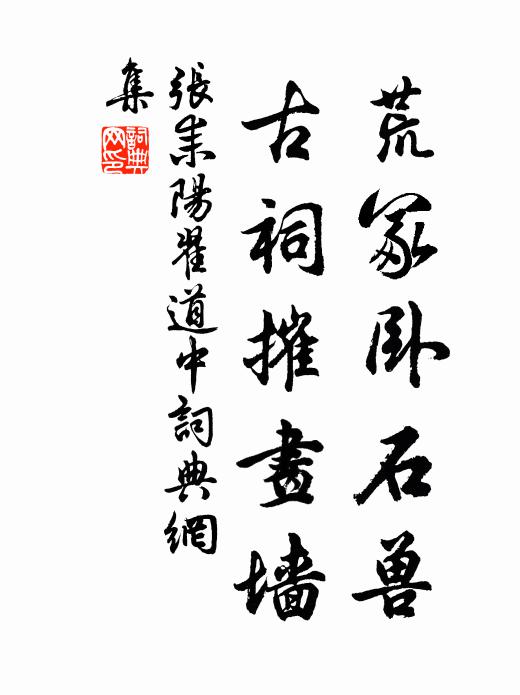 荒冢卧石兽
古祠摧畫墙
張耒陽翟道中詞典網
集
詞典網印